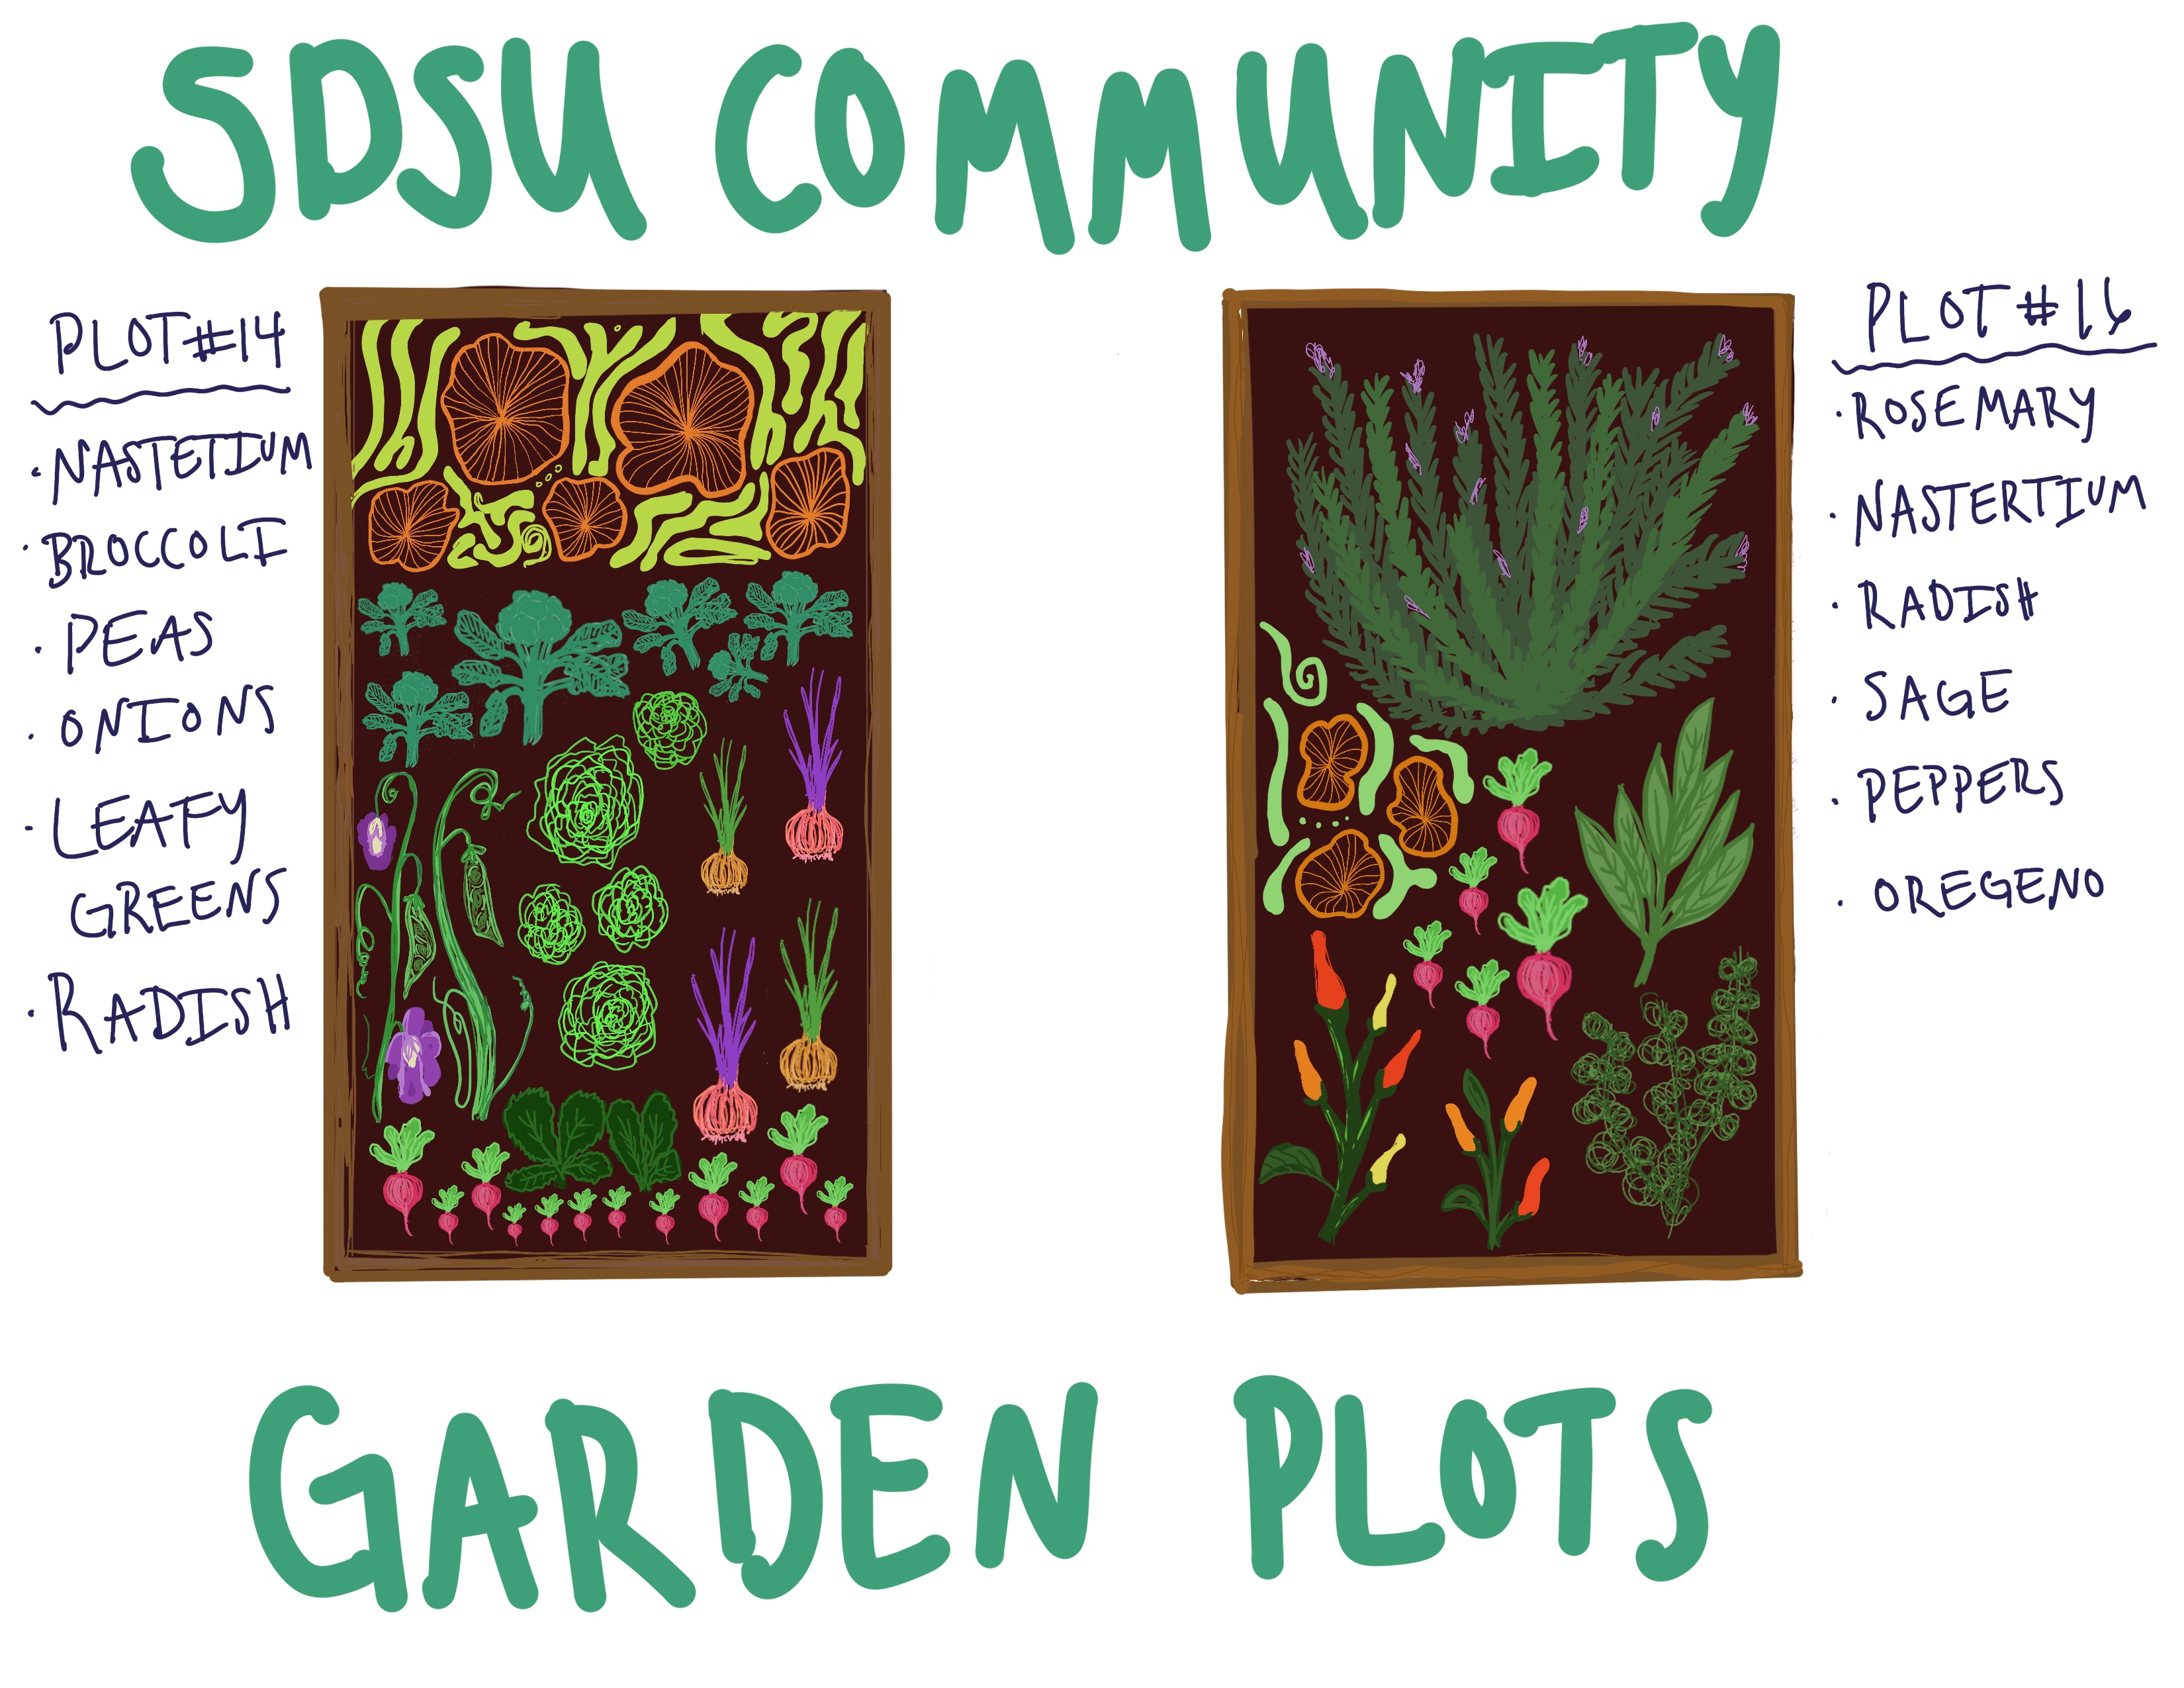 SDSU COMMUNITY
PLOT #14
· NASTETIUM
· BROCCOLI
· PEAS
· ONIONS
· LEAFY
GREENS
· RADISH
PLOT #16
· ROSEMARY
· NASTERTIUM
· RADISH
· SAGE
· PEPPERS
· OREGENO
GARDEN PLOTS